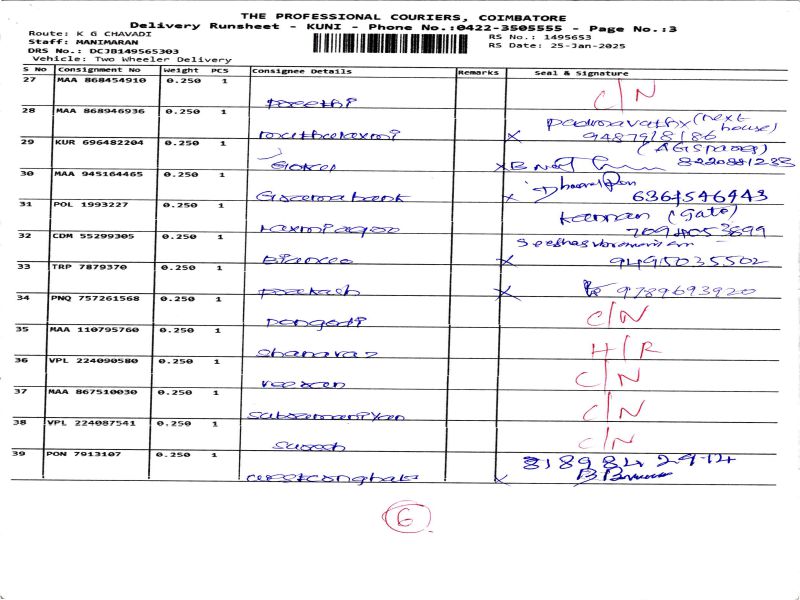 THE PROFESSIONAL COURIERS, COIMBATORE
Delivery Runsheet - KUNI - Phone No.:0422-3505555 - Page No.:3
Route: K G CHAVADI
RS No.: 1495653
Staff: MANIMARAN
RS Date: 25-Jan-2025
DRS No.: DCJB149565303
Vehicle: Two Wheeler Delivery
S No Consignment No Weight PCS Consignee Details Remarks Seal & Signature
27 MAA 868454910 0.250 1
Preethi C/N
28 MAA 868946936 0.250 1
muthulaxmi x Padmavathy (next house) 9487918186
29 KUR 696482204 0.250 1
Gokul x (AGS Paper) 8220881283
30 MAA 945164465 0.250 1
bank x 6364546443
31 POL 1993227 0.250 1
Laxmi Kannan (Gate)
32 CDM 55299305 0.250 1
x 9495035502
33 TRP 7879370 0.250 1
Prakash x 9789693920
34 PNQ 757261568 0.250 1
C/N
35 MAA 110795760 0.250 1
Shanavaz H/R
36 VPL 224090580 0.250 1
C/N
37 MAA 867510030 0.250 1
Subramaniyan C/N
38 VPL 224087541 0.250 1
Suresh C/N
39 PON 7913107 0.250 1
x 8189842914
6